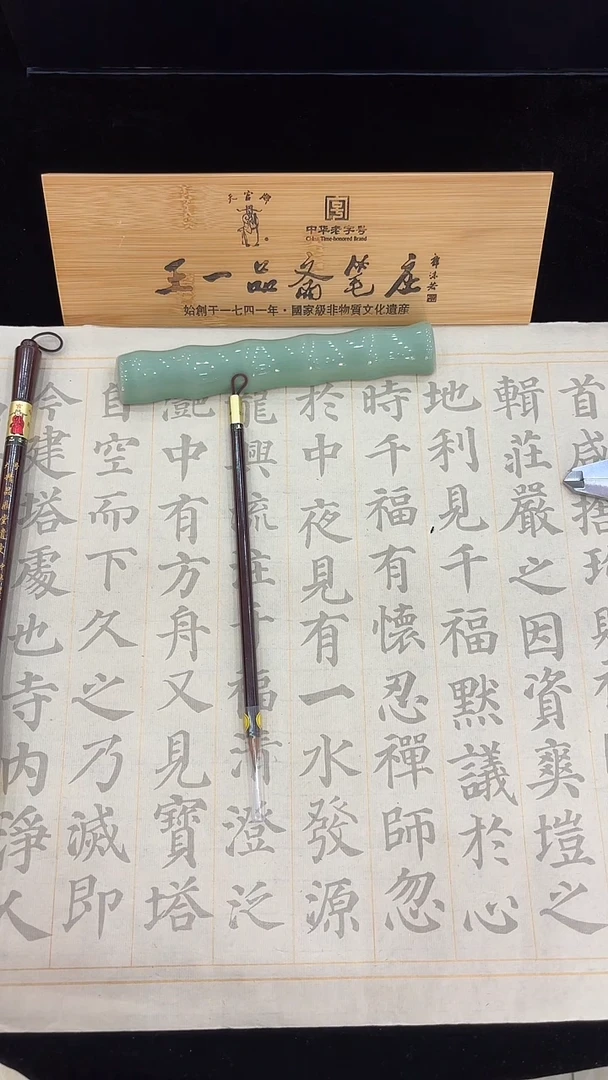 中华老字号
China Time-honored Brand
王一品斋笔庄
郭沫若
始創于一七四一年·國家級非物質文化遺産
首咸捨珍
輯莊嚴之因資爽塏之
地利見千福默議於心
時千福有懷忍禪師忽
於中夜見有一水發源
龍興流注千福清澄泛
灩中有方舟又見寶塔
自空而下久之乃滅即
今建塔處也寺内淨人